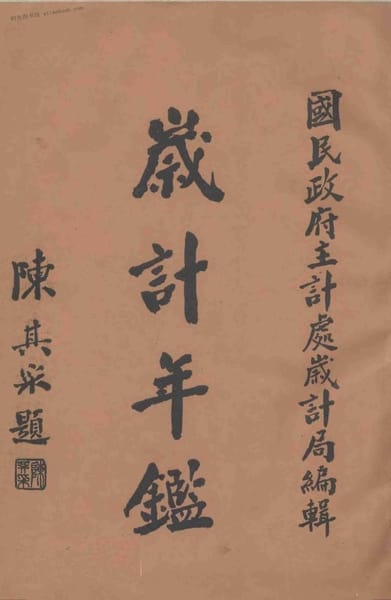 國民政府主計處歲計局編輯
歲計年鑑
陳其采題